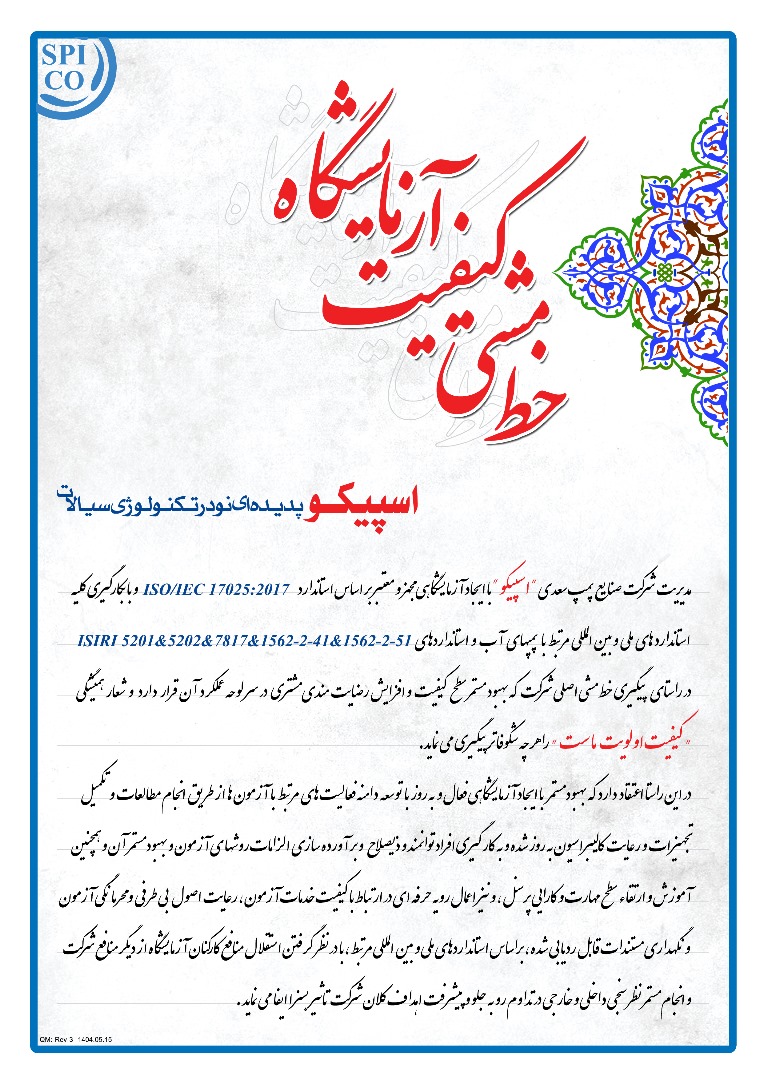 SPI
CO
خط مشی
کیفیت
آزمایشگاه
اسپیکو پدیده‌ای نو در تکنولوژی سیالات
مدیریت شرکت صنایع پمپ سعدی "اسپیکو" با ایجاد آزمایشگاهی مجهز و معتبر بر اساس استاندارد ISO/IEC 17025:2017 و با بکارگیری کلیه
استانداردهای ملی و بین المللی مرتبط با پمپهای آب و استانداردهای ISIRI 5201&5202&7817&1562-2-41&1562-2-51
در راستای پیگیری خط مشی اصلی شرکت که بهبود مستمر سطح کیفیت و افزایش رضایت مندی مشتری در سرلوحه عملکرد آن قرار دارد و شعار همیشگی
"کیفیت اولویت ماست" را هر چه شکوفاتر پیگیری می نماید.
در این راستا اعتقاد دارد که بهبود مستمر با ایجاد آزمایشگاهی فعال و به روز با توسعه دامنه فعالیت های مرتبط با آزمون ها از طریق انجام مطالعات و تکمیل
تجهیزات و رعایت کالیبراسیون به روز شده و به کارگیری افراد توانمند و ذیصلاح و برآورده سازی الزامات روشهای آزمون و بهبود مستمر آن و همچنین
آموزش و ارتقاء سطح مهارت و کارایی پرسنل، و نیز اعمال رویه حرفه ای در ارتباط با کیفیت خدمات آزمون، رعایت اصول بی طرفی و محرمانگی آزمون
و نگهداری مستندات قابل ردیابی شده، بر اساس استانداردهای ملی و بین المللی مرتبط، با در نظر گرفتن استقلال منافع کارکنان آزمایشگاه از دیگر منافع شرکت
و انجام مستمر نظرسنجی داخلی و خارجی در تداوم رو به جلو و پیشرفت اهداف کلان شرکت تاثیر بسزا ایفا می نماید.
QM: Rev 3 1404.05.15